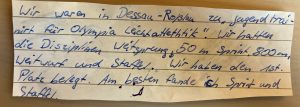 Wir waren in Dessau-Roßlau zu „Jugend trai-
niert für Olympia Leichtathletik". Wir hatten
die Disziplinen Weitsprung, 50 m Sprint, 800 m,
Weitwurf und Staffel. Wir haben den 1st.
Platz belegt. Am besten fande ich Sprint und
Staffel.